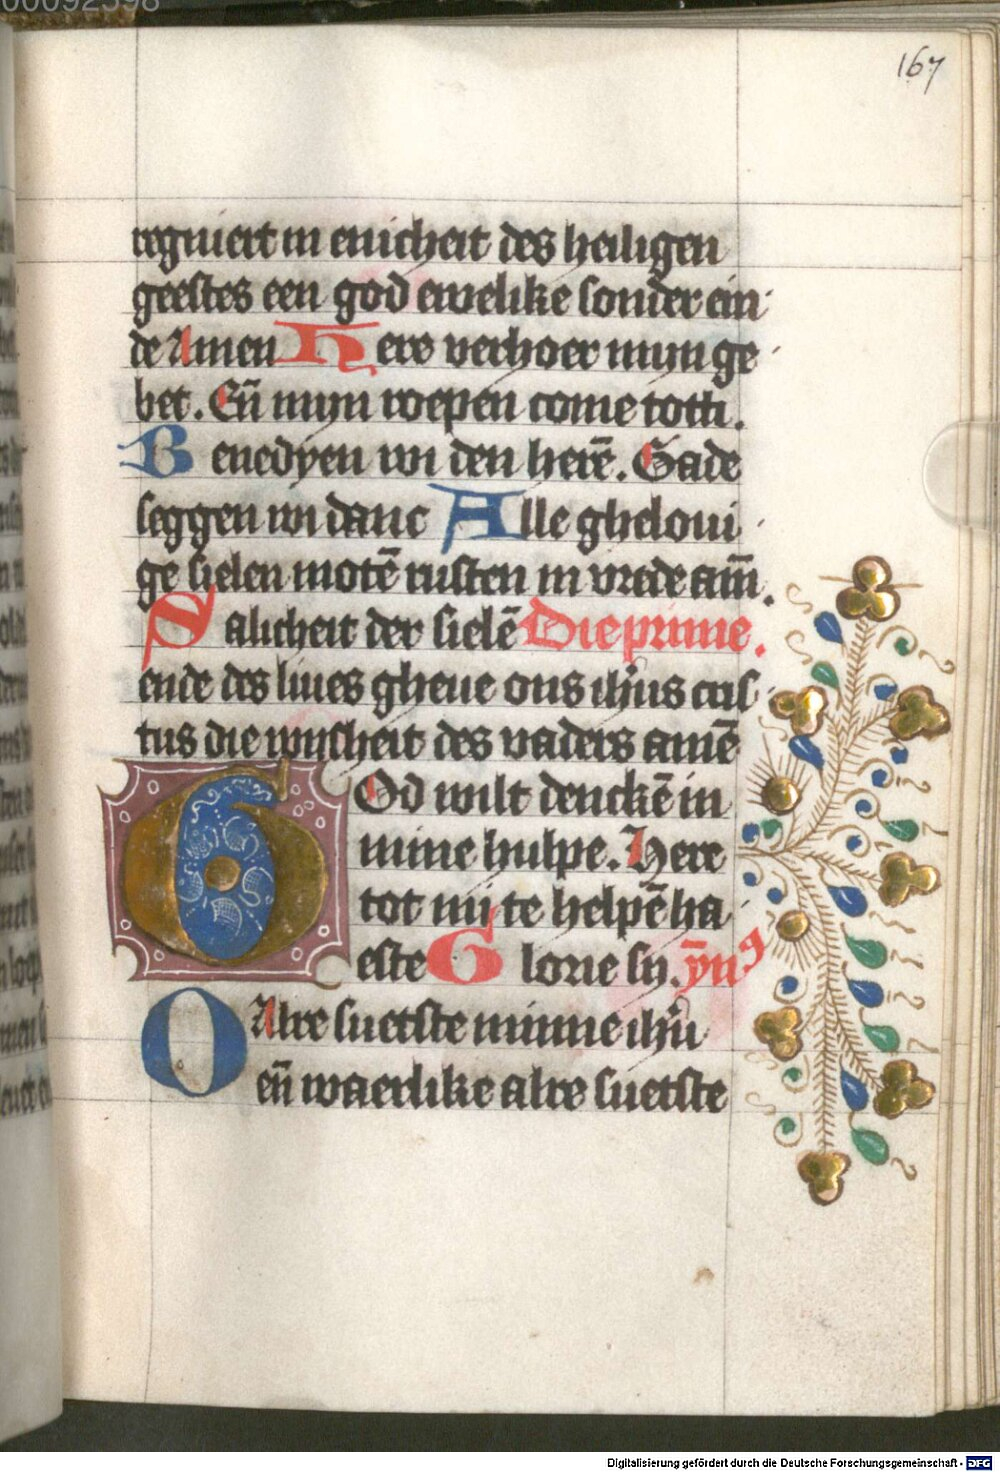 00092598
167
regniert in enicheit des heiligen
geestes een god ewelike sonder ein
de Amen Here verhoer mijn ge
bet. Eñ mijn roepen come totti.
Benedyen wi den herē. Gade
seggen wi danc Alle gheloui
ge sielen motē rusten in vrede am̄.
Salicheit der sielē Die prime.
ende des liues gheue ons ihūs cris
tus die wijsheit des vaders amē
God wilt denckē in
mine hulpe. Here
tot mi te helpē ha
este Glorie sy. ȳnꝰ
O Alre suetste minne ihū
eñ waerlike alre suetste
Digitalisierung gefördert durch die Deutsche Forschungsgemeinschaft - DFG